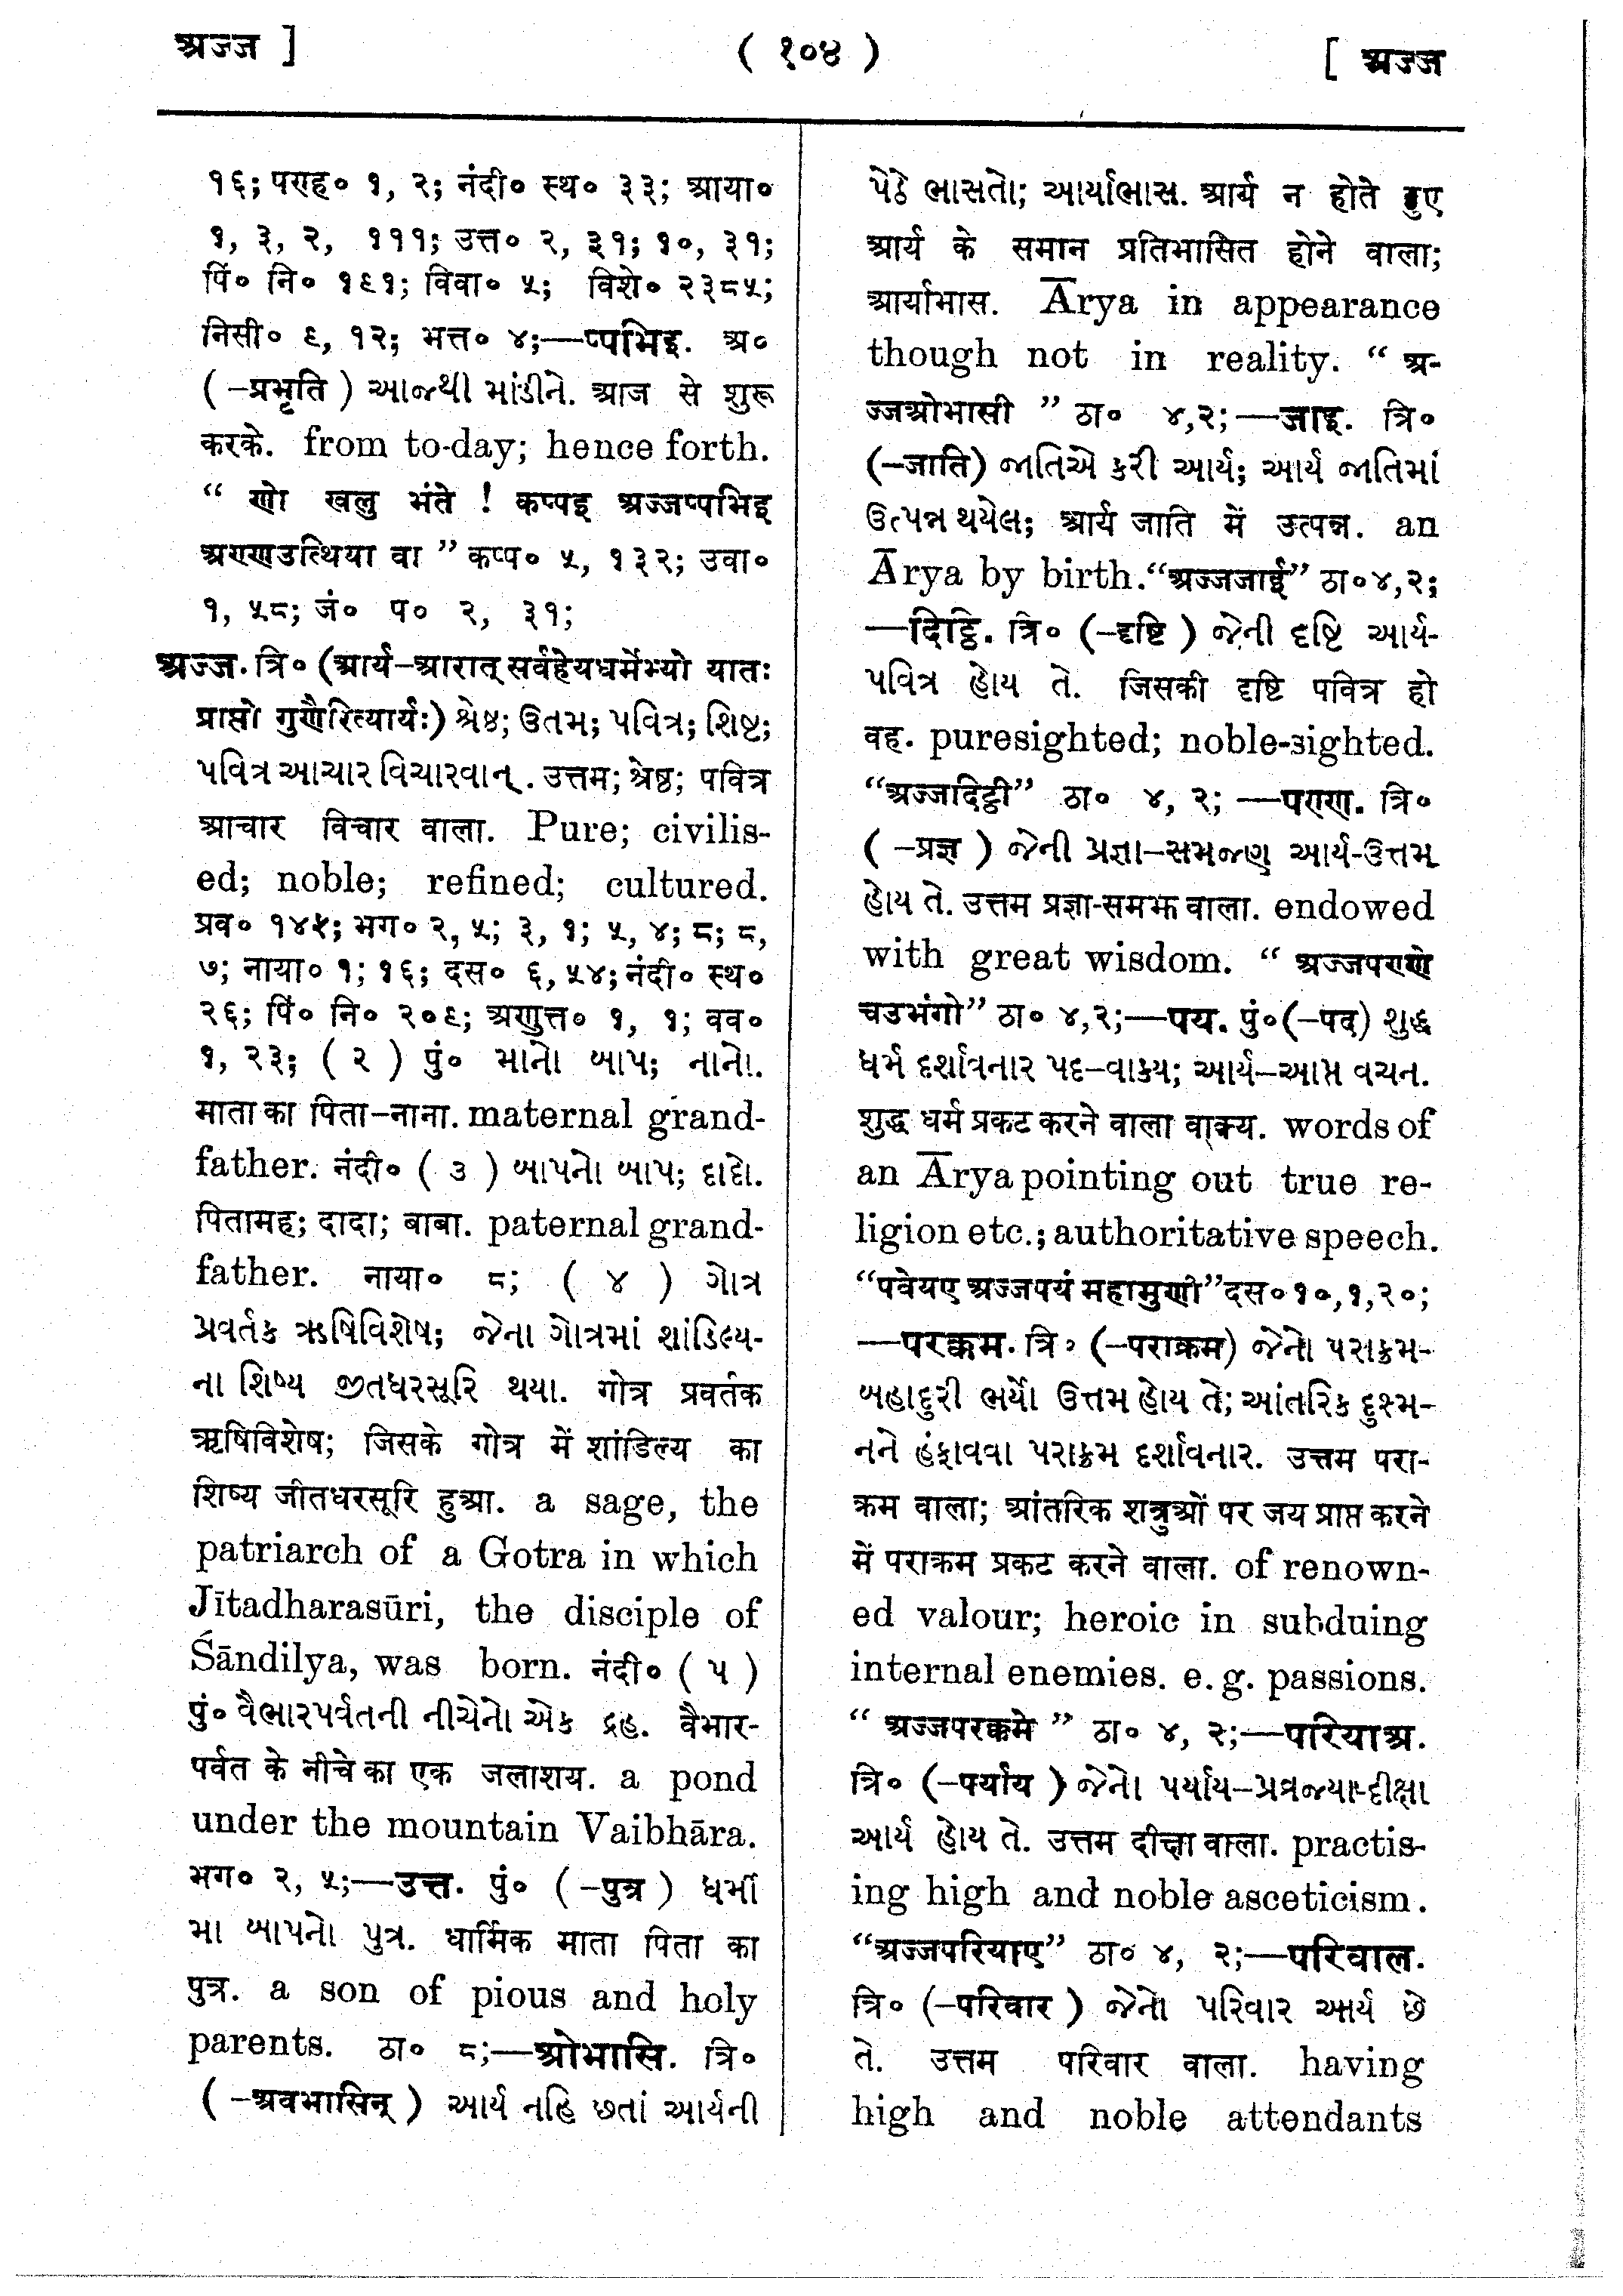 अज्ज ]
( १०४ )
[ अज्ज
१६; पण्ह० १, २; नंदी० स्थ० ३३; आया०
१, ३, २, १११; उत्त० २, ३१; १०, ३१;
पिं० नि० १९१; विवा० ५; विशे० २३८५;
निसी० ९, १२; भत्त० ४;—प्पभिइ. अ०
(-प्रभृति ) આજથી માંડીને. आज से शुरू
करके. from to-day; hence forth.
“ णो खलु भंते ! कप्पइ अज्जप्पभिइ
अण्णउत्थिया वा ” कप्प० ५, १३२; उवा०
१, ५८; जं० प० २, ३१;
अज्ज. त्रि० (आर्य-आरात् सर्वहेयधर्मेभ्यो यातः
प्राप्तो गुणैरित्यार्यः) શ્રેષ્ઠ; ઉતમ; પવિત્ર; શિષ્ટ;
પવિત્ર આચાર વિચારવાન્. उत्तम; श्रेष्ठ; पवित्र
आचार विचार वाला. Pure; civilis-
ed; noble; refined; cultured.
प्रव० १४५; भग० २, ५; ३, १; ५, ४; ८; ८,
७; नाया० १; १६; दस० ६, ५४; नंदी० स्थ०
२६; पिं० नि० २०९; अणुत्त० १, १; वव०
१, २३; ( २ ) पुं० માનો બાપ; નાનો.
माता का पिता-नाना. maternal grand-
father. नंदी० ( ૩ ) બાપનો બાપ; દાદો.
पितामह; दादा; बाबा. paternal grand-
father. नाया० ८; ( ૪ ) ગોત્ર
પ્રવર્તક ઋષિવિશેષ; જેના ગોત્રમાં શાંડિલ્ય-
ના શિષ્ય જીતધરસૂરિ થયા. गोत्र प्रवर्तक
ऋषिविशेष; जिसके गोत्र में शांडिल्य का
शिष्य जीतधरसूरि हुआ. a sage, the
patriarch of a Gotra in which
Jītadharasūri, the disciple of
Śāndilya, was born. नंदी० ( ૫ )
पुं० વૈભારપર્વતની નીચેનો એક દ્રહ. वैभार-
पर्वत के नीचे का एक जलाशय. a pond
under the mountain Vaibhāra.
भग० २, ५;—उत्त. पुं० (-पुत्र ) ધર્મી
મા બાપનો પુત્ર. धार्मिक माता पिता का
पुत्र. a son of pious and holy
parents. ठा० ८;—ओभासि. त्रि०
(-अवभासिन् ) આર્ય નહિ છતાં આર્યની
પેઠે ભાસતો; આર્યાભાસ. आर्य न होते हुए
आर्य के समान प्रतिभासित होने वाला;
आर्याभास. Ārya in appearance
though not in reality. “ अ-
ज्जओभासी ” ठा० ४,२;—जाइ. त्रि०
(-जाति) જાતિએ કરી આર્ય; આર્ય જાતિમાં
ઉત્પન્ન થયેલ; आर्य जाति में उत्पन्न. an
Ārya by birth.“अज्जजाई” ठा०४,२;
—दिट्ठि. त्रि० (-दृष्टि ) જેની દૃષ્ટિ આર્ય-
પવિત્ર હોય તે. जिसकी दृष्टि पवित्र हो
वह. puresighted; noble-sighted.
“अज्जदिट्ठी” ठा० ४, २; —पण्ण. त्रि०
( -प्रज्ञ ) જેની પ્રજ્ઞા-સમજણ આર્ય-ઉત્તમ
હોય તે. उत्तम प्रज्ञा-समझ वाला. endowed
with great wisdom. “ अज्जपण्णे
चउभंगो” ठा० ४,२;—पय. पुं०(-पद) શુદ્ધ
ધર્મ દર્શાવનાર પદ-વાક્ય; આર્ય-આપ્ત વચન.
शुद्ध धर्म प्रकट करने वाला वाक्य. words of
an Ārya pointing out true re-
ligion etc.; authoritative speech.
“पवेयए अज्जपयं महामुणी”दस०१०,१,२०;
—परक्कम. त्रि० (-पराक्रम) જેનો પરાક્રમ-
બહાદુરી ભર્યો ઉત્તમ હોય તે; આંતરિક દુશ્મ-
નને હંફાવવા પરાક્રમ દર્શાવનાર. उत्तम परा-
क्रम वाला; आंतरिक शत्रुओं पर जय प्राप्त करने
में पराक्रम प्रकट करने वाला. of renown-
ed valour; heroic in subduing
internal enemies. e. g. passions.
“ अज्जपरक्कमे ” ठा० ४, २;—परियाअ.
त्रि० (-पर्याय ) જેનો પર્યાય-પ્રવ્રજ્યા-દીક્ષા
આર્ય હોય તે. उत्तम दीक्षा वाला. practis-
ing high and noble asceticism.
“अज्जपरियाए” ठा० ४, २;—परिवाल.
त्रि० (-परिवार ) જેનો પરિવાર આર્ય છે
તે. उत्तम परिवार वाला. having
high and noble attendants